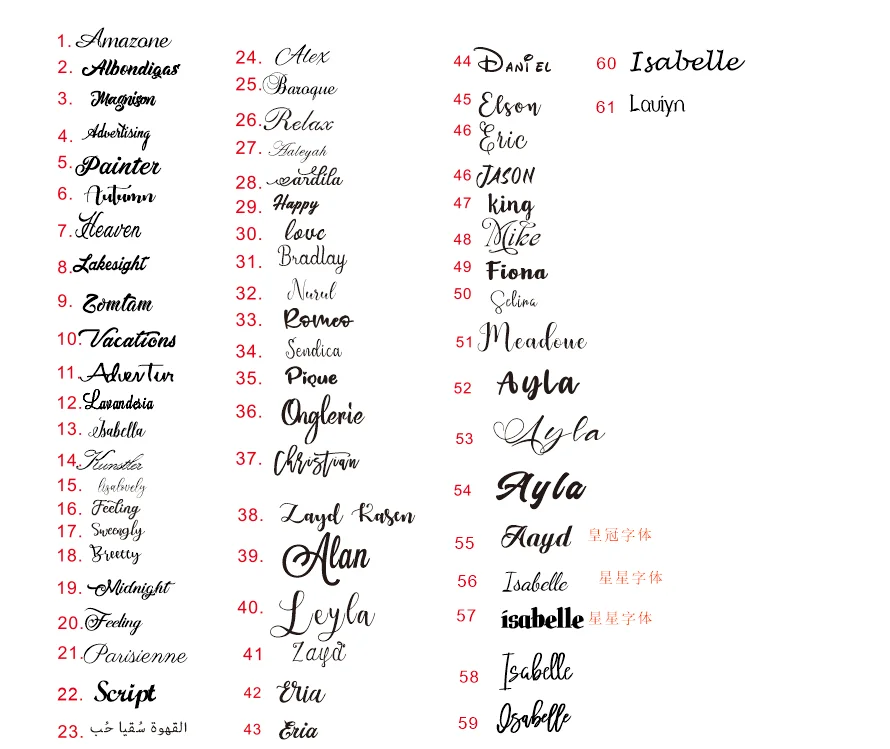 1. Amazone
2. Albondigas
3. Magnison
4. Advertising
5. Painter
6. Autumn
7. Heaven
8. Lakesight
9. Zomtam
10. Vacations
11. Adventur
12. Lavanderia
13. Isabella
14. Kunstler
15. lizalovely
16. Feeling
17. Sweengly
18. Breetty
19. Midnight
20. Feeling
21. Parisienne
22. Script
23. القهوة سُقيا حُب
24. Alex
25. Baroque
26. Relax
27. Aaleyah
28. Lardila
29. Happy
30. love
31. Bradlay
32. Nurul
33. Romeo
34. Sendica
35. Pique
36. Onglerie
37. Christian
38. Zayd Kasen
39. Alan
40. Leyla
41 Zayd
42 Eria
43 Eria
44 DANiEL
45 Elson
46 Eric
46 JASON
47 king
48 Mike
49 Fiona
50 Selina
51 Meadoue
52 Ayla
53 Ayla
54 Ayla
55 Aayd 皇冠字体
56 Isabelle 星星字体
57 isabelle 星星字体
58 Isabelle
59 Isabelle
60 Isabelle
61 Lauiyn